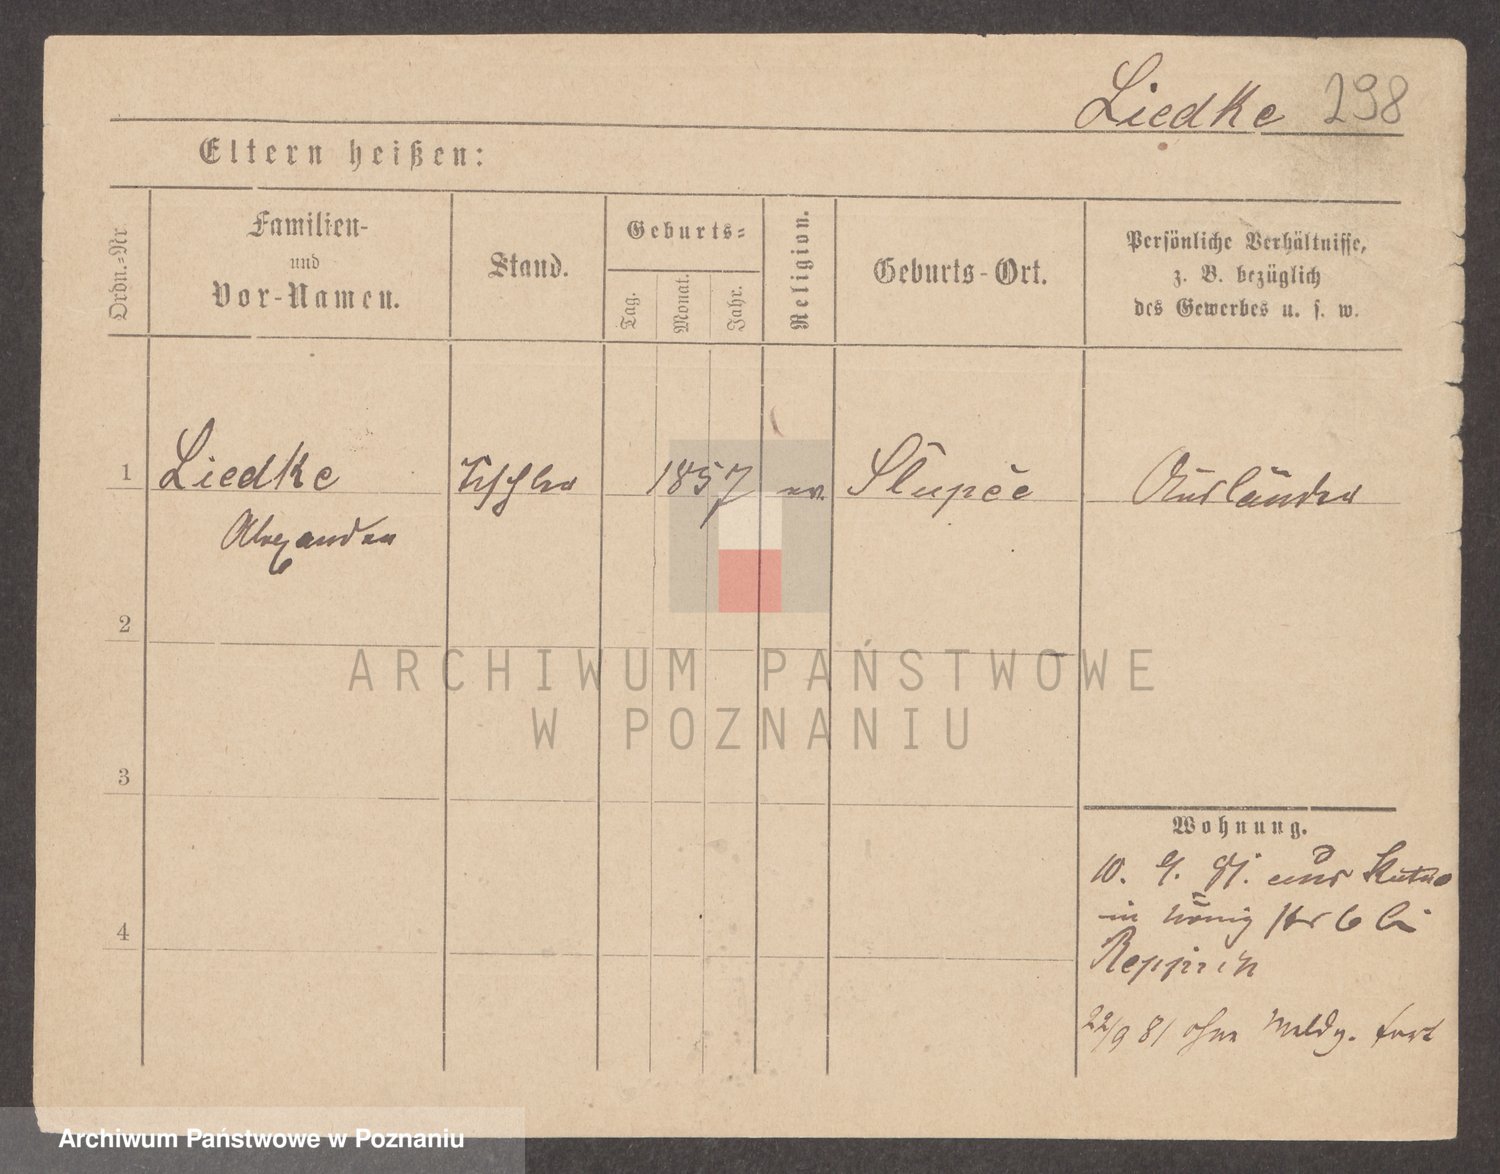 Liedke 298
Eltern heißen:
Ordn.-Nr
Familien-
und
Vor-Namen.
Stand.
Geburts-
Tag.
Monat.
Jahr.
Religion.
Geburts-Ort.
Persönliche Verhältnisse,
z. B. bezüglich
des Gewerbes u. s. w.
1 Liedke Tischler 1857 ev. Slupce Ausländer
Alexander
2
3
4
Wohnung.
10. 9. aus Kutno
in König Str 6 bei
22/9 81 ohne Meldg. fort
ARCHIWUM PAŃSTWOWE
W POZNANIU
Archiwum Państwowe w Poznaniu